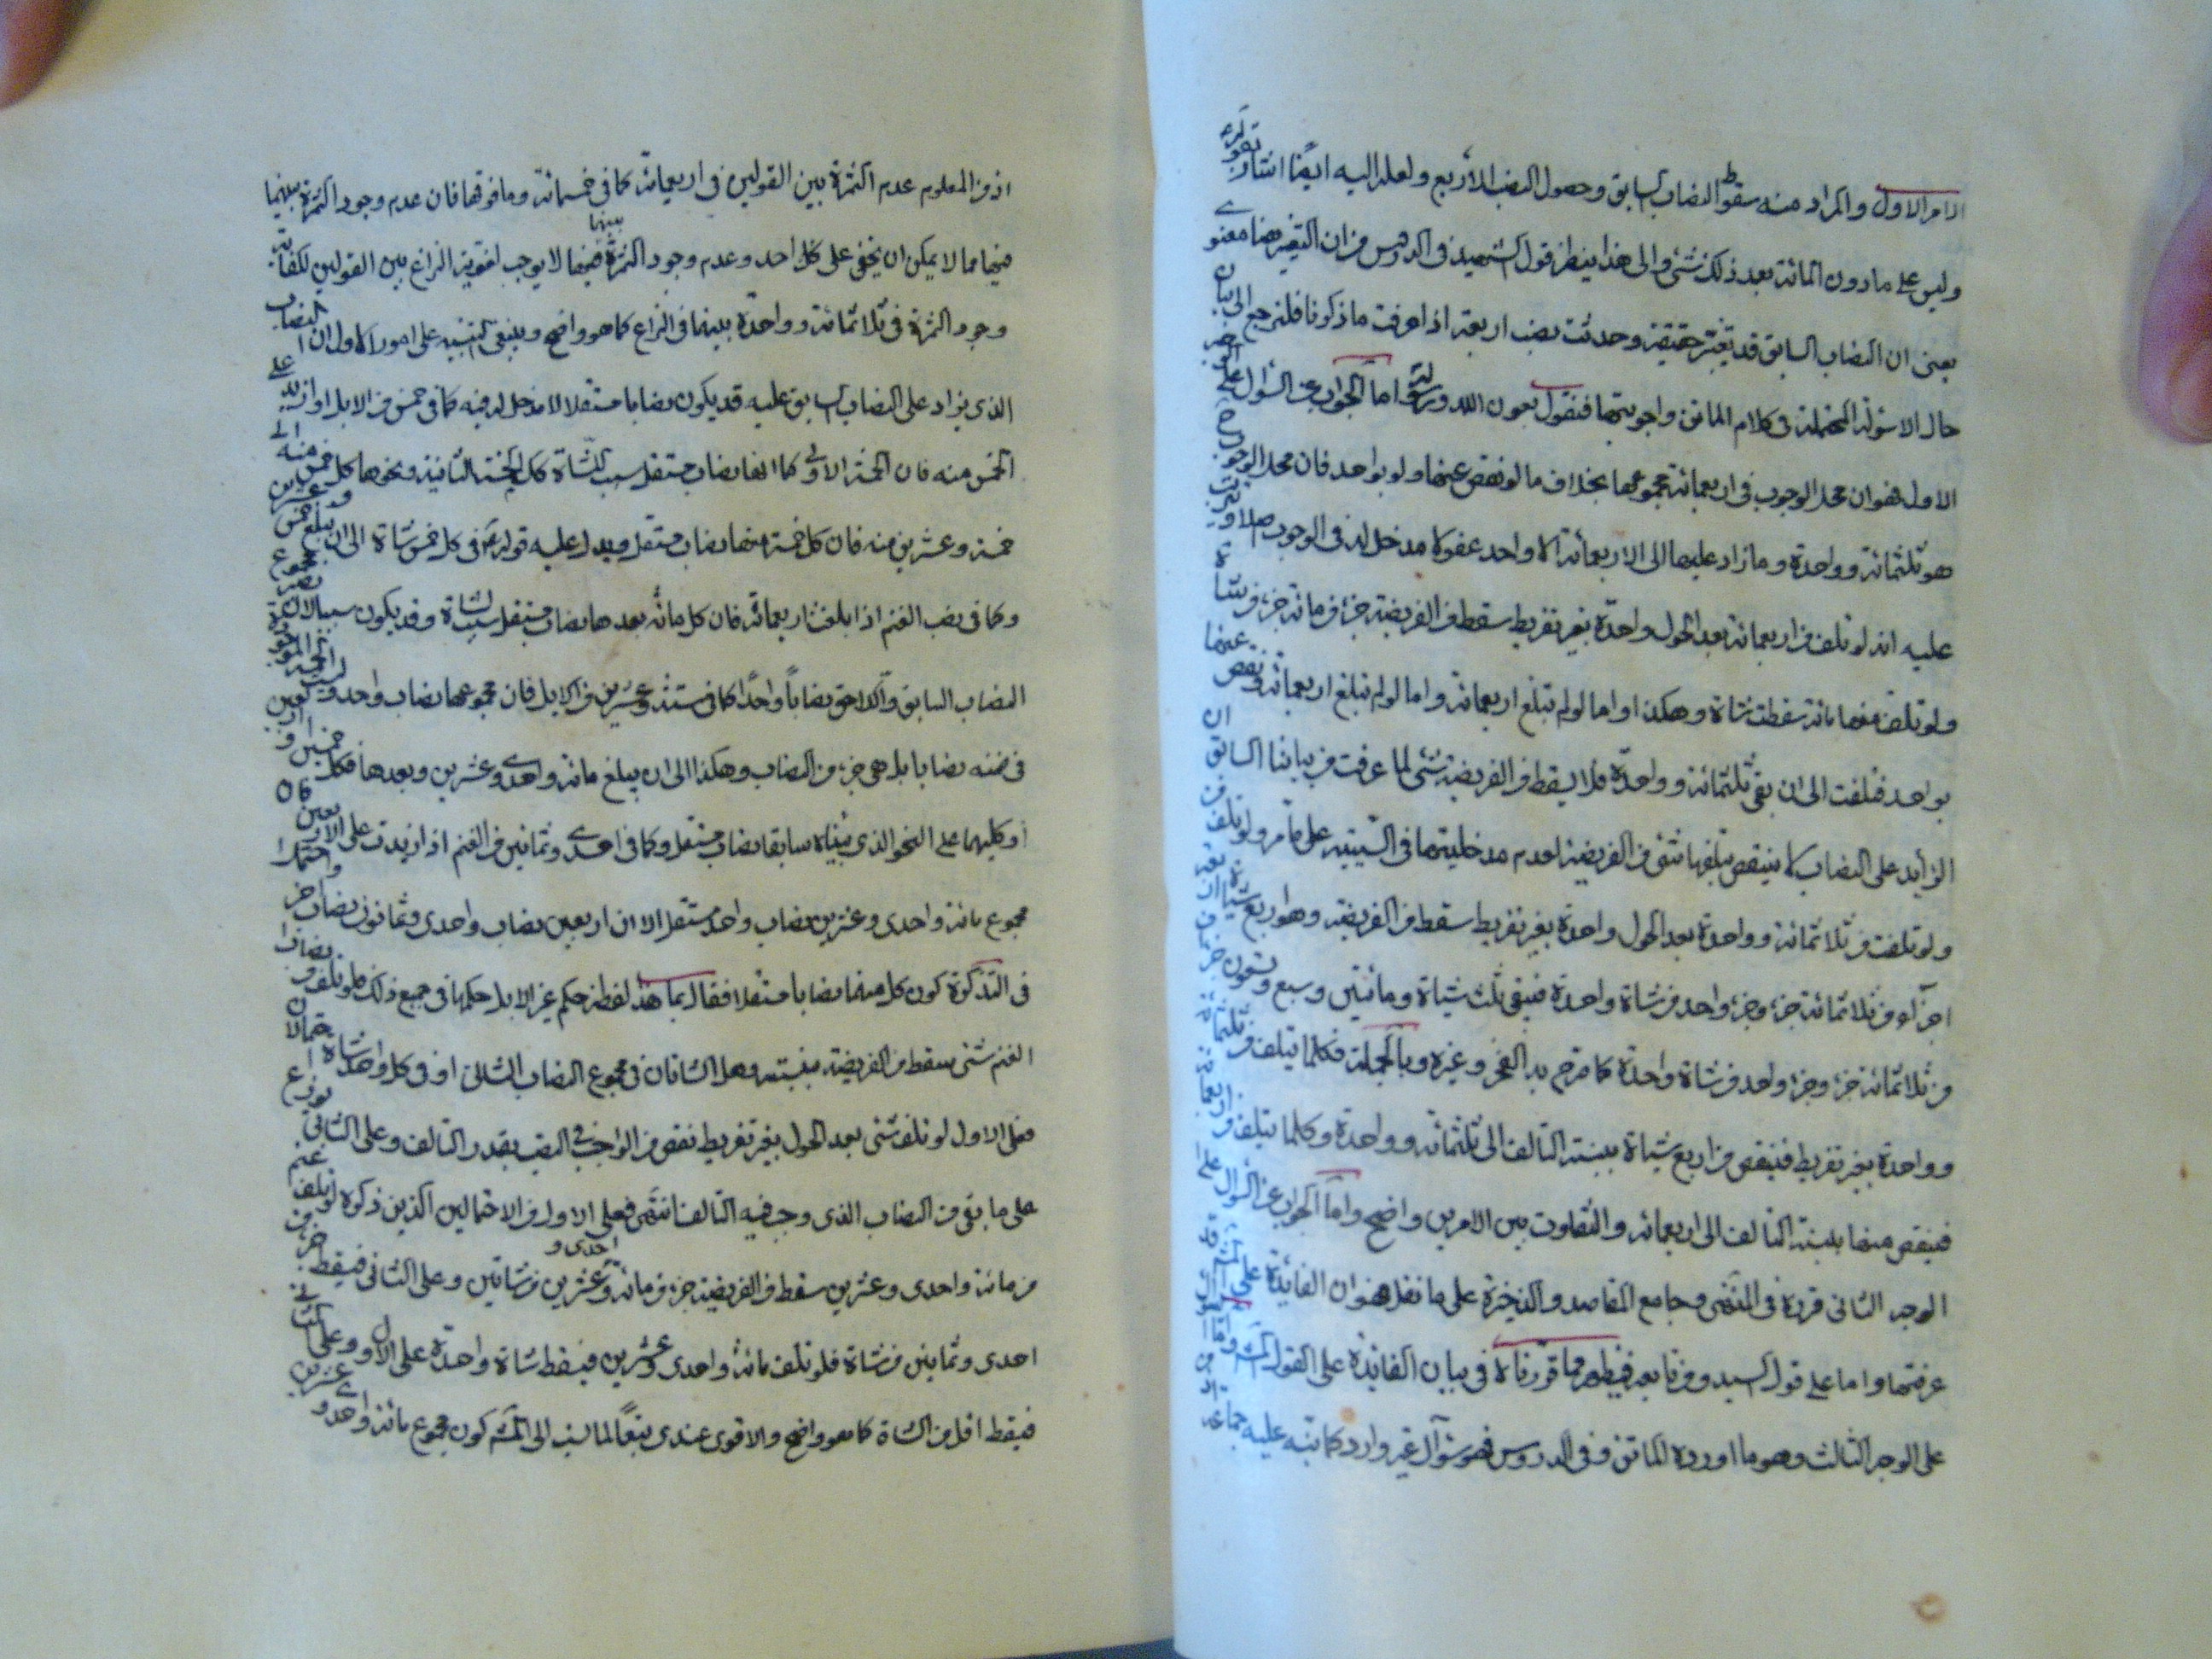 الامر الاول والمراد منه سقوط النصاب السابق وحصول النصب الأربع ولعله اليه ايضًا اشار بقوله
وليس على ما دون المائة بعد ذلك شئ والى هذا ينظر قول الشهيد فى الدروس من ان التغير هنا معنوى
يعنى ان النصاب السابق قد تغير حقيقة وحدثت نصب اربعة اذا عرفت ما ذكرنا فلنرجع الى بيان
حال الاسئولة المحتملة فى كلام الماتن واجوبتها فنقول بعون الله اما الجواب عن السؤال على الوجه
الاول فهو ان محل الوجوب فى اربعمائة مجموعها بخلاف ما لو نقص عنها ولو بواحد فان محل الوجوب
هو ثلثمائة وواحدة وما زاد عليها الى الاربعمائة الا واحد عفو لا مدخل له فى الوجوب اصلا
عليه انه لو تلف من اربعمائة بعد الحول واحدة بغير تفريط سقط من الفريضة جزء من مائة جزء من شاة
ولو تلف منها مائة سقطت شاة وهكذا واما لو لم تبلغ اربعمائة ونقص عنها
بواحد فتلفت الى ان بقى ثلثمائة وواحدة فلا يسقط من الفريضة شئ لما عرفت من بياننا السابق ان
الزايد على النصاب لا ينقص بتلفها شئ من الفريضة لعدم مدخليتها فى السببية على ما مر ولو تلف من
ولو تلفت من ثلاثمائة وواحدة بعد الحول واحدة بغير تفريط سقط من الفريضة وهو اربع شياة
اجزاء من ثلاثمائة جزء وجزء واحد من شاة واحدة فيبقى ثلث شياة ومائتين وسبع وتسعون جزء
من ثلاثمائة جزء وجزء واحد من شاة واحدة كما صرح به الفخر وغيره وبالجملة فكلما يتلف من ثلثمائة
وواحدة بغير تفريط فينقص من اربع شياة بنسبة التالف الى ثلثمائة وواحدة وكلما يتلف من اربعمائة
فينقص منها بنسبة التالف الى اربعمائة والتفاوت بين الامرين واضح واما الجواب عن السؤال على
الوجه الثانى قرره فى المنتهى وجامع المقاصد والذخيرة على ما نقل فهو ان الفائدة على المش قد
عرفتها واما على قول السيد ومن تابعه فيظهر مما قررناه فى بيان الفائدة على القول المش واما السؤال
على الوجه الثالث وهو ما اورده الماتن وفى الدروس فهو سؤال غير وارد كما نبه عليه جماعة
اذ من المعلوم عدم الثمرة بين القولين فى اربعمائة كما فى خمسمائة وما فوقها فان عدم وجود الثمرة بينهما
فيها مما لا يمكن ان يخفى على كل احد وعدم وجود الثمرة بينهما فيها لا يوجب لغوية النزاع بين القولين لكفاية
وجود الثمرة فى ثلاثمائة وواحدة بينهما فى النزاع كما هو واضح وينبغى التنبيه على امور الاول ان النصاب
الذى يزاد على النصاب السابق عليه قد يكون نصابا مستقلا لا مدخل له فيه كما فى خمس من الابل اذا زيد على
الخمس منه فان الخمسة الاولى كما انها نصاب مستقل سبب للشاة كك الخمسة الثانية ونحوها كل خمس منه الى
خمسة وعشرين منه فان كل خمسة منها نصاب مستقل ويدل عليه قوله ع فى كل خمس شاة الى ان يبلغ خمس وعشرين
وكما فى نصب الغنم اذا بلغت اربعمائة فان كل مائة بعدها نصاب مستقل سبب لشاة وقد يكون سببا لان
النصاب السابق واللاحق نصاباً واحدًا كما فى ستة وعشرين من الابل فان مجموعها نصاب واحد وليست
فى ضمنه نصابا بل هى جزء من النصاب وهكذا الى ان يبلغ مائة واحدى وعشرين وبعدها فكل خمسين و اربعين
او كليهما على النحو الذى بيناه سابقا نصاب مستقل وكما فى احدى وثمانين من الغنم اذا زيدت على الاربعين
مجموع مائة واحدى وعشرين نصاب واحد مستقل لا ان اربعين نصاب واحدى وثمانون نصاب اخر واحتمل
فى التذكرة كون كل منهما نصابا مستقلا فقال بما هذا لفظه حكم غير الابل حكمها فى جميع ذلك فلو تلف من نصاب
الغنم شئ سقط من الفريضة بنسبته وهل الشاتان فى مجموع النصاب الثانى او فى كل واحد شاة احتمالان
فعلى الاول لو تلف شئ بعد الحول بغير تفريط نقص من الواجب فى النصب بقدر التالف وعلى الثانى يوزع
على ما بقى من النصاب الذى وجب فيه التالف انتهى فعلى الاول من الاحتمالين الذين ذكره لو تلف غنم
من مائة واحدى وعشرين سقط من الفريضة جزء من مائة واحدى وعشرين من شاتين وعلى الثانى فيسقط جزء من
احدى وثمانين من شاة فلو تلف مائة واحدى وعشرين فيسقط شاة واحدة على الاول وعلى الثانى
فيسقط اقل من الشاة كما هو واضح والاقوى عندى تبعًا لما نسب الى المش كون مجموع مائة واحدى وعشرين